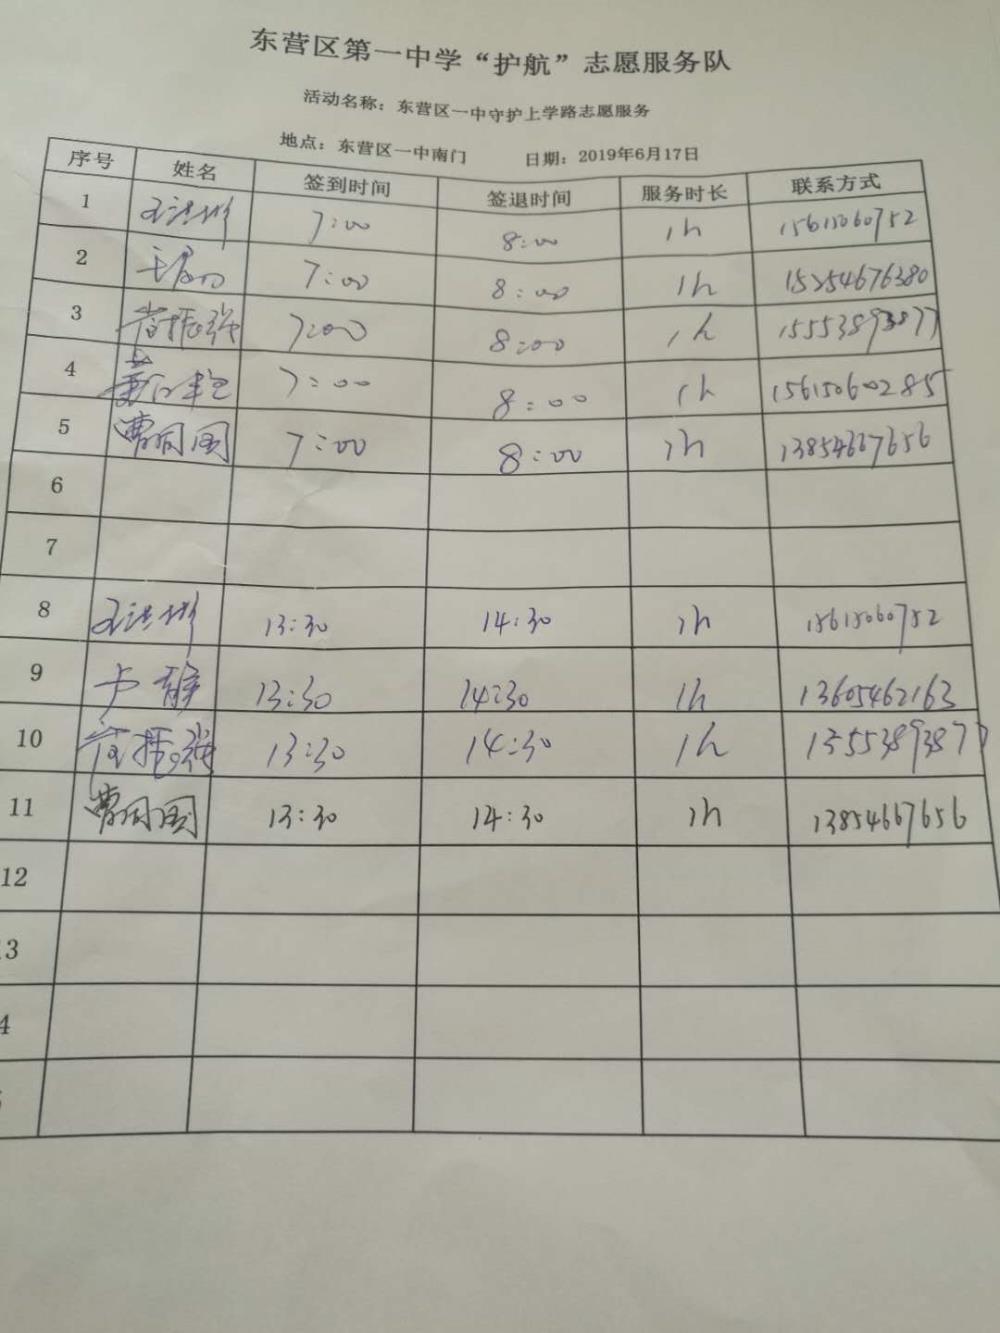 东营区第一中学“护航”志愿服务队
活动名称：东营区一中守护上学路志愿服务
地点：东营区一中南门 日期：2019年6月17日
序号 姓名 签到时间 签退时间 服务时长 联系方式
1 7:00 8:00 1h 15615060752
2 7:00 8:00 1h 15254676380
3 7:00 8:00 1h 15553893877
4 7:00 8:00 1h 15615060285
5 曹同国 7:00 8:00 1h 13854667656
6
7
8 13:30 14:30 1h 15615060752
9 卢静 13:30 14:30 1h 13605462163
10 13:30 14:30 1h 15553893877
11 曹同国 13:30 14:30 1h 13854667656
12
3
4